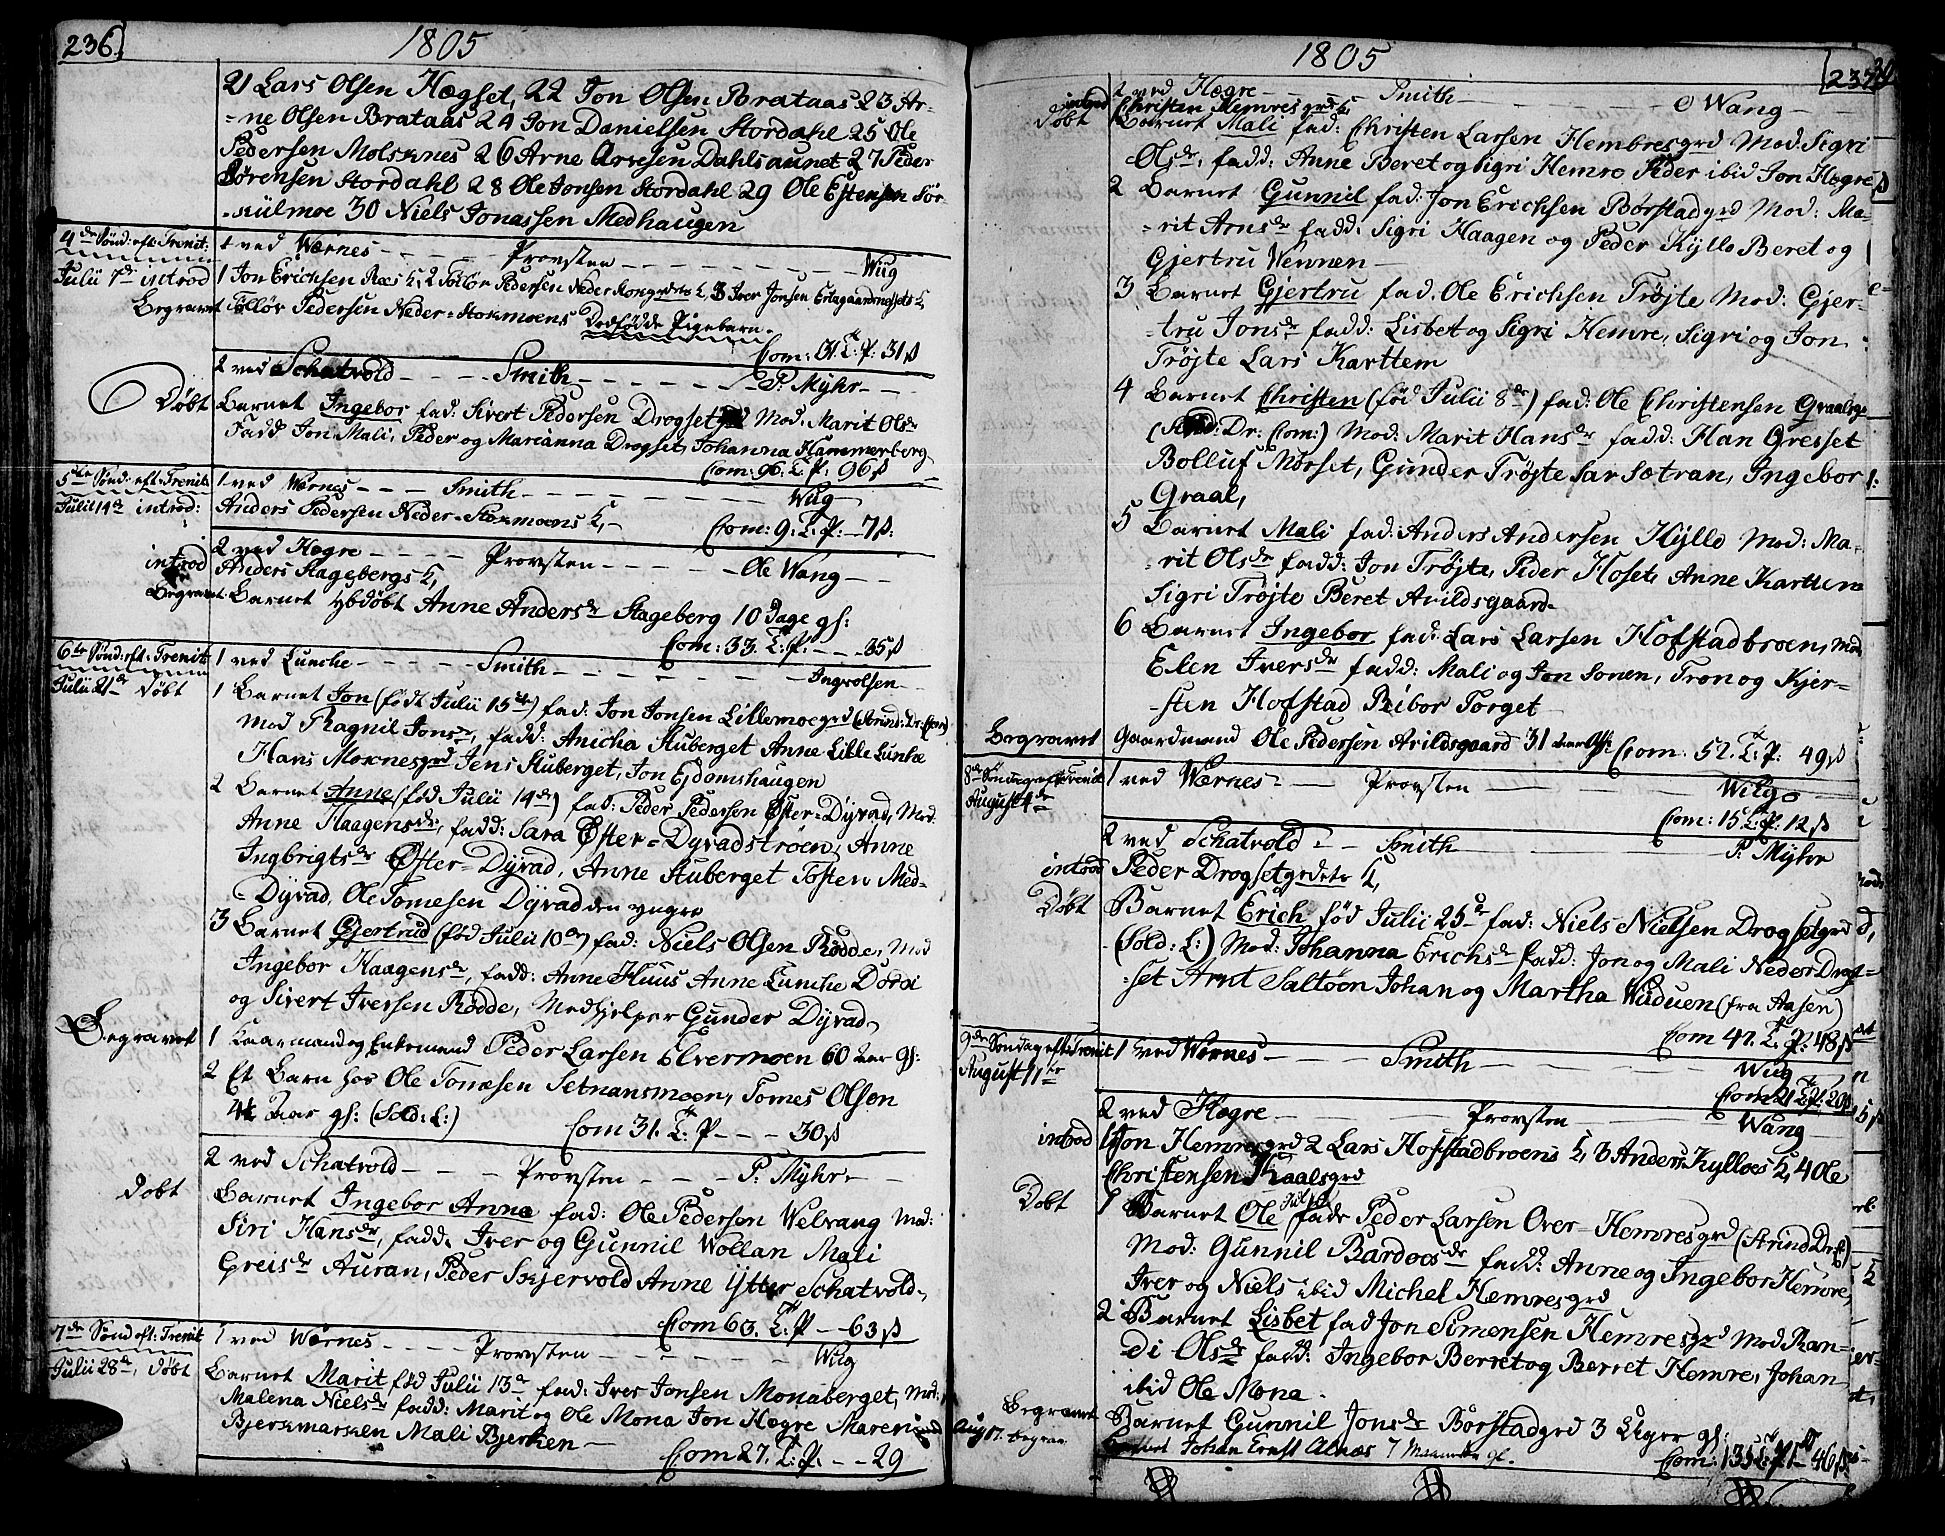 236
1805
21 Lars Olsen Hægset, 22 Jon Olsen Brataas 23 Ar-
-ne Olsen Brataas 24 Jon Danielsen Stordahl 25 Ole
Pedersen Molsknes 26 Arne Arnesen Dahlsaunet 27 Peder
Sörensen Stordahl 28 Ole Jonsen Stordahl 29 Ole Estensen Sör-
-kulmoe 30 Niels Jonassen Medhaugen
4de Sönd: eft: Trenit: 1 ved Wærnes - - - Provsten - - - Wiig
Julii 7de introd 1 Jon Erichsen Ræs K, 2 Pedersen Neder 3 Iver Jonsen
Begravet Pedersen Neder-Stokmoens Dødfødde Pigebarn.
Com: 31. T: P: 31 ß
2 ved Schatvold - - - Smith - - - P. Mÿhr - -
Døbt Barnet Ingebor fad: Sivert Pedersen Drogset Mod: Marit Olsdr
Fadd Jon Mali, Peder og Marianna Drogset, Johanna Hammerberg
Com: 96. T. P. 96 ß
5te Sönd: eft: Trenit: 1 ved Wærnes - - - Smith - - - Wiig
Julii 14de introd: Anders Pedersen Neder-Stokmoens K, - Com: 9. T. P. - 7 ß:
2 ved Hægre - - - Provsten - - - Ole Wang - -
introd Anders Stagebergs K,
Begravet Barnet hbdöbt Anne Andersdr Stageberg 10 Dage gl:
Com: 33. T: P: - - 35 ß
6te Sönd: eft: Trenit: 1 ved Lunche - - - Smith - - - Ingvolsen
Julii 21de Döbt 1 Barnet Jon (født Julii 15de) fad: Jon Jonsen Lillemoegrd (Strind: Dr: Com)
Mod Ragnil Jonsdr, fadd: Anicha Stuberget Anne Lille Lunke
Hans Moxnesgrd Jens Stuberget, Jon Ejdomshaugen
2 Barnet Anne (fød Julii 14de) fad: Peder Pedersen Øfter-Dÿvad, Mod:
Anne Haagensdr, fadd: Sara Øfter-Dyvadstrøen, Anne
Ingbrigtsdr Øfter-Dÿvad, Anne Stuberget Tosten Med-
-Dÿvad, Ole Tomesen Dÿvad den yngre
3 Barnet Gjertrud (fød Julii 10de) fad: Niels Olsen Rødde, Mod
Ingebor Haagensdr, fadd: Anne Huus Anne Lunche Dordi
og Sivert Iversen Rødde, Medhjelper Gunder Dÿvad
Begravet 1 Kaarmand og Enkemand Peder Larsen Elvermoen 60 Aar gl:
2 Et Barn hos Ole Tomesen Setnansmoen, Tomes Olsen
4½ Aar gl: (Sold: L:) Com 31. T: P - - - 30 ß
2 ved Schatvold - - - Provsten - - - P. Mÿhr -
Døbt Barnet Ingebor Anna fad: Ole Pedersen Welvang Mod:
Siri Hansdr, fadd: Iver og Gunnil Wollan Mali
Greisdr Auran, Peder Skjervold Anne Ytter Schatvold
Com 63. T. P - - 63 ß
7de Sönd eft: Trenit 1 ved Wærnes - - - Provsten - - - Wiig
Julii 28de, Döbt Barnet Marit fød Julii 13de fad: Iver Jonsen Monaberget, Mod:
Malena Nielsdr fadd: Marit og Ole Mona Jon Hægre Maren
Bjerkmarken Mali Bjerken -
Com 27. T. P. - - 29
1805
237
2 ved Hægre - - - Smith - - - O Wang -
introd Christen Hemresgrds K
Döbt 1 Barnet Mali fad: Christen Larsen Hembresgrd Mod: Sigri
Olsdr, fadd: Anne Beret og Sigri Hemre Peder ibid Jon Hægre
2 Barnet Gunnil fad: Jon Erichsen Børstadgrd Mod: Ma-
-rit Arnsdr fadd: Sigri Haagen og Peder Kÿllo Beret og
Gjertru Wennen -
3 Barnet Gjertru fad. Ole Erichsen Trøjte Mod: Gjer-
-tru Jonsdr fadd: Lisbet og Sigri Hemre, Sigri og Jon
Trøjte Lars Karttem
4 Barnet Christen (fød Julii 8de) fad: Ole Christensen Graalsgr
(Strind: Dr: Com:) Mod: Marit Hansdr fadd: Han Gresset
Bolluf Mørset, Gunder Trøjte Sar Sætran, Ingebor
Graal,
5 Barnet Mali fad: Anders Andersen Kÿllo Mod: Ma-
-rit Olsdr fadd: Jon Trøjte, Peder Hoset, Anne Karttem
Sigri Trøjte Beret Arildsgaard
6 Barnet Ingebor fad: Lars Larsen Hofstadbroen, Mod
Elen Iversdr fadd: Mali og Jon Sonen, Tron og Kjer-
-sten Hofstad Ribor Torget
Begravet Gaardmand Ole Pedersen Arildsgaard 31 Aar gl: Com: 52. T. P. 49 ß
8de Søndag eft Trenit 1 ved Wærnes - - - Provsten - - - Wiig
August 4de Com: 15 T: P: 12 ß
2 ved Schatvold - - - Smith - - - P. Mÿhr
introd Peder Drogsetgrdets K,
Døbt Barnet Erich fød Julii 25de fad: Niels Nielsen Drogsetgrd
(Sold: L:) Mod: Johanna Erichsdr fadd: Jon og Mali Neder-Drog-
-set Arnt Saltøen Johan og Martha Wuduen (fra Aasen)
Com 47. T. P. 48 ß
9de Søndag eft: Trenit 1 ved Wærnes - - - Smith - - - Wiig
August 11te Com 21 T. P. 20 ß
2 ved Hægre - - - Provsten - - - Wang
introd 1 Jon Hemresgrd 2 Lars Hofstadbroens K, 3 Anders Kylloes K, 4 Ole
Christensen Kraalsgrd
Döbt 1 Barnet Ole fad: Peder Larsen Over-Hemresgrd (Strind Dr: C)
Mod: Gunnil Bardoesdr fadd: Anne og Ingebor Hemre,
Iver og Niels ibid Michel Hemresgrd
2 Barnet Lisbet fad Jon Simensen Hemresgrd Mod Ran-
di Olsdr fadd: Ingebor Berret og Berret Hemre, Johan
ibid Ole Mona.
Begravet Barnet Gunnil Jonsdr Børstadgrd 3 Uger gl:
Aug 17. begrav. Barnet Johan Ernst Alnæs 7 Maaneder gl.
Com: 135 T. P. 146 ß